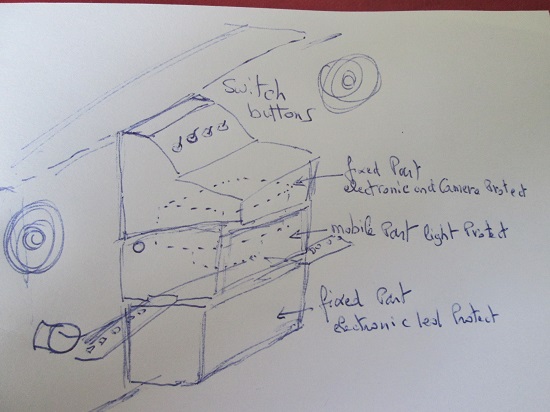 Switch
buttons
fixed Part
electronic and Camera Protect
mobile Part light Protect
fixed Part
electronic led Protect